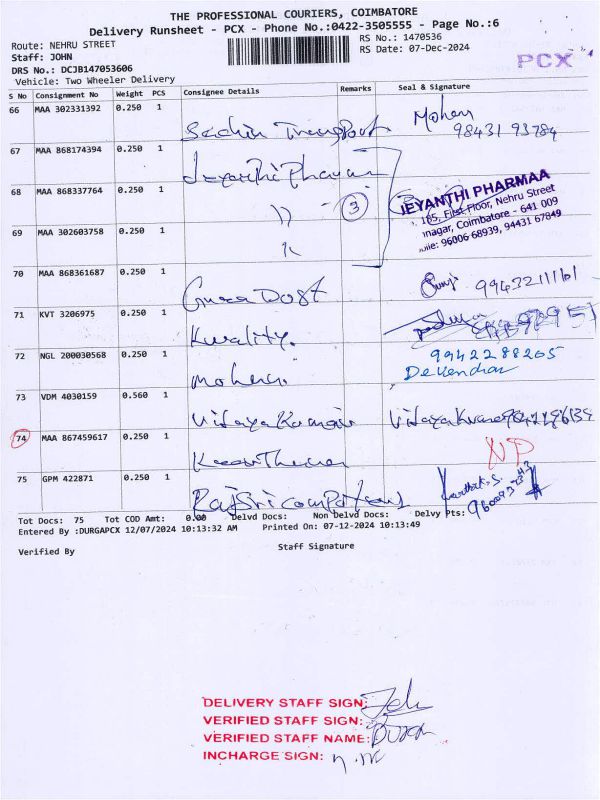 THE PROFESSIONAL COURIERS, COIMBATORE
Delivery Runsheet - PCX - Phone No.:0422-3505555 - Page No.:6
Route: NEHRU STREET
Staff: JOHN
DRS No.: DCJB147053606
Vehicle: Two Wheeler Delivery
RS No.: 1470536
RS Date: 07-Dec-2024
PCX
S No Consignment No Weight PCS Consignee Details Remarks Seal & Signature
66 MAA 302331392 0.250 1 Sachin Transport Mohan
98431 93784
67 MAA 868174394 0.250 1 Jeyanthi Pharma
68 MAA 868337764 0.250 1 )) 3
JEYANTHI PHARMAA
185, First Floor, Nehru Street
nagar, Coimbatore - 641 009
bile: 96006 68939, 94431 67849
69 MAA 302603758 0.250 1
70 MAA 868361687 0.250 1 Dost 9943211161
71 KVT 3206975 0.250 1 Kwality.
72 NGL 200030568 0.250 1 Mohan. 9942288205
Devendran
73 VDM 4030159 0.560 1 Vidaya Kumar
74 MAA 867459617 0.250 1 NP
75 GPM 422871 0.250 1 Rajsri Karthik.S.
Tot Docs: 75 Tot COD Amt: 0.00 Delvd Docs: Non Delvd Docs: Delvy Pts:
Entered By :DURGAPCX 12/07/2024 10:13:32 AM Printed On: 07-12-2024 10:13:49
Verified By Staff Signature
DELIVERY STAFF SIGN:
VERIFIED STAFF SIGN:
VERIFIED STAFF NAME:
INCHARGE SIGN: